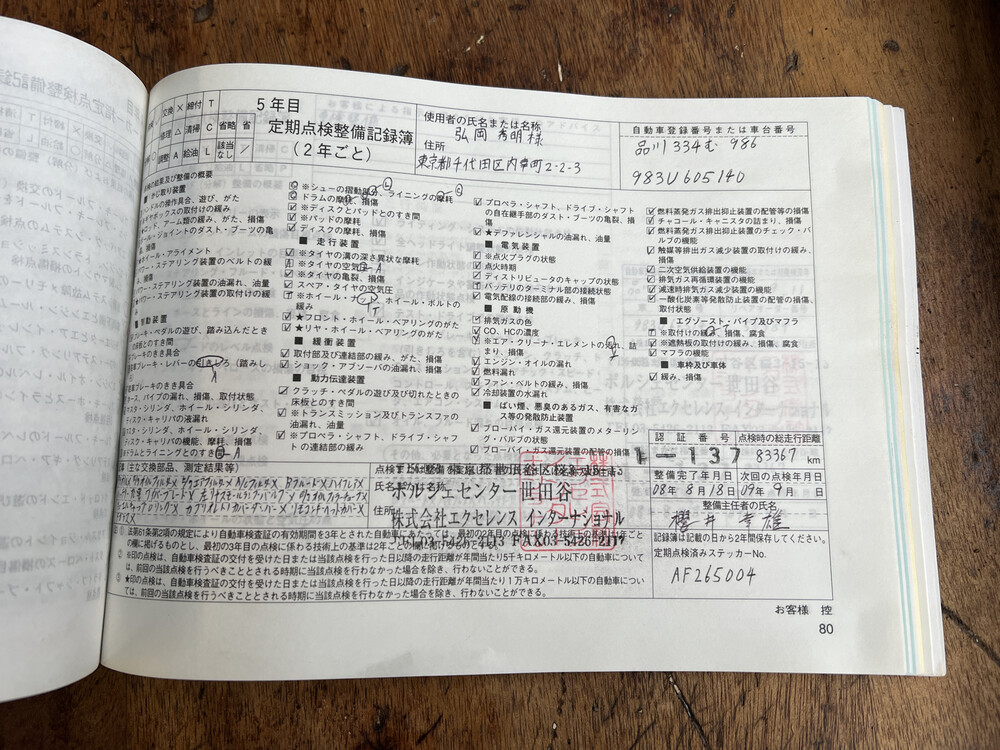 交換 × 締付 T
修理 △ 清掃 C 省略 省
調整 A 給油 L 該当なし /
5年目
定期点検整備記録簿
(2年ごと)
使用者の氏名または名称
弘岡 秀明様
住所
東京都千代田区内幸町2-2-3
自動車登録番号または車台番号
品川 334 む 986
983U605140
点検の結果及び整備の概要
■ かじ取り装置
ハンドルの操作具合、遊び、がた
ギヤボックスの取付けの緩み
ロッド、アーム類の緩み、がた、損傷
ボール・ジョイントのダスト・ブーツの亀裂、損傷
ホイール・アライメント
パワー・ステアリング装置のベルトの緩み、損傷
★パワー・ステアリング装置の油漏れ、油量
★パワー・ステアリング装置の取付けの緩み
■ 制動装置
ブレーキ・ペダルの遊び、踏み込んだときの床板とのすき間
ブレーキのきき具合
引きしろ
マスタ・シリンダ、ホイール・シリンダ、ディスク・キャリパの液漏れ
マスタ・シリンダ、ホイール・シリンダ、ディスク・キャリパの機能、摩耗、損傷
ドラムとライニングとのすき間
※シューの摺動部分、ライニングの摩耗
ドラムの摩耗、損傷
※ディスクとパッドとのすき間
※パッドの摩耗
ディスクの摩耗、損傷
■ 走行装置
※タイヤの溝の深さ異状な摩耗
※タイヤの空気圧
※タイヤの亀裂、損傷
スペア・タイヤの空気圧
※ホイール・ナット、ホイール・ボルトの緩み
★フロント・ホイール・ベアリングのがた
★リヤ・ホイール・ベアリングのがた
■ 緩衝装置
取付部及び連結部の緩み、がた、損傷
ショック・アブソーバの油漏れ、損傷
■ 動力伝達装置
クラッチ・ペダルの遊び及び切れたときの床板とのすき間
※トランスミッション及びトランスファの油漏れ、油量
※プロペラ・シャフト、ドライブ・シャフトの連結部の緩み
プロペラ・シャフト、ドライブ・シャフトの自在継手部のダスト・ブーツの亀裂、損傷
★デファレンシャルの油漏れ、油量
■ 電気装置
※点火プラグの状態
点火時期
ディストリビュータのキャップの状態
バッテリのターミナル部の接続状態
電気配線の接続部の緩み、損傷
■ 原動機
排気ガスの色
CO、HCの濃度
※エア・クリーナ・エレメントの汚れ、詰まり、損傷
エンジン・オイルの漏れ
燃料漏れ
ファン・ベルトの緩み、損傷
冷却装置の水漏れ
■ ばい煙、悪臭のあるガス、有害なガス等の発散防止装置
ブローバイ・ガス還元装置のメターリング・バルブの状態
ブローバイ・ガス還元装置の配管の損傷
燃料蒸発ガス排出抑止装置の配管等の損傷
チャコール・キャニスタの詰まり、損傷
燃料蒸発ガス排出抑止装置のチェック・バルブの機能
触媒等排出ガス減少装置の取付けの緩み、損傷
二次空気供給装置の機能
排気ガス再循環装置の機能
減速時排気ガス減少装置の機能
一酸化炭素等発散防止装置の配管の損傷、取付状態
■ エグゾースト・パイプ及びマフラ
※取付けの緩み、損傷、腐食
※遮熱板の取付けの緩み、損傷、腐食
マフラの機能
■ 車枠及び車体
緩み、損傷
(主な交換部品、測定結果等)
ポルシェセンター世田谷
株式会社エクセレンス インターナショナル
FAX03-5426-2117
認証番号
1-137
点検時の総走行距離
83367 km
整備完了年月日
08年8月18日
次回の点検年月日
09年9月 日
整備主任者の氏名
櫻井 幸雄
記録簿は記載の日から2年間保存してください。
定期点検済みステッカーNo.
AF265004
① 法第61条第2項の規定により自動車検査証の有効期間を3年とされた自動車にあっては、最初の2年目の点検に係わる技術上の基準は1年ごとの欄に掲げるものとし、最初の3年目の点検に係わる技術上の基準は2年ごとの欄に掲げるものとする。
② ※印の点検は、自動車検査証の交付を受けた日または当該点検を行った日以降の走行距離が年間当たり5千キロメートル以下の自動車については、前回の当該点検を行うべきこととされる時期に当該点検を行わなかった場合を除き、行わないことができる。
③ ★印の点検は、自動車検査証の交付を受けた日または当該点検を行った日以降の走行距離が年間当たり1万キロメートル以下の自動車については、前回の当該点検を行うべきこととされる時期に当該点検を行わなかった場合を除き、行わないことができる。
お客様 控
80